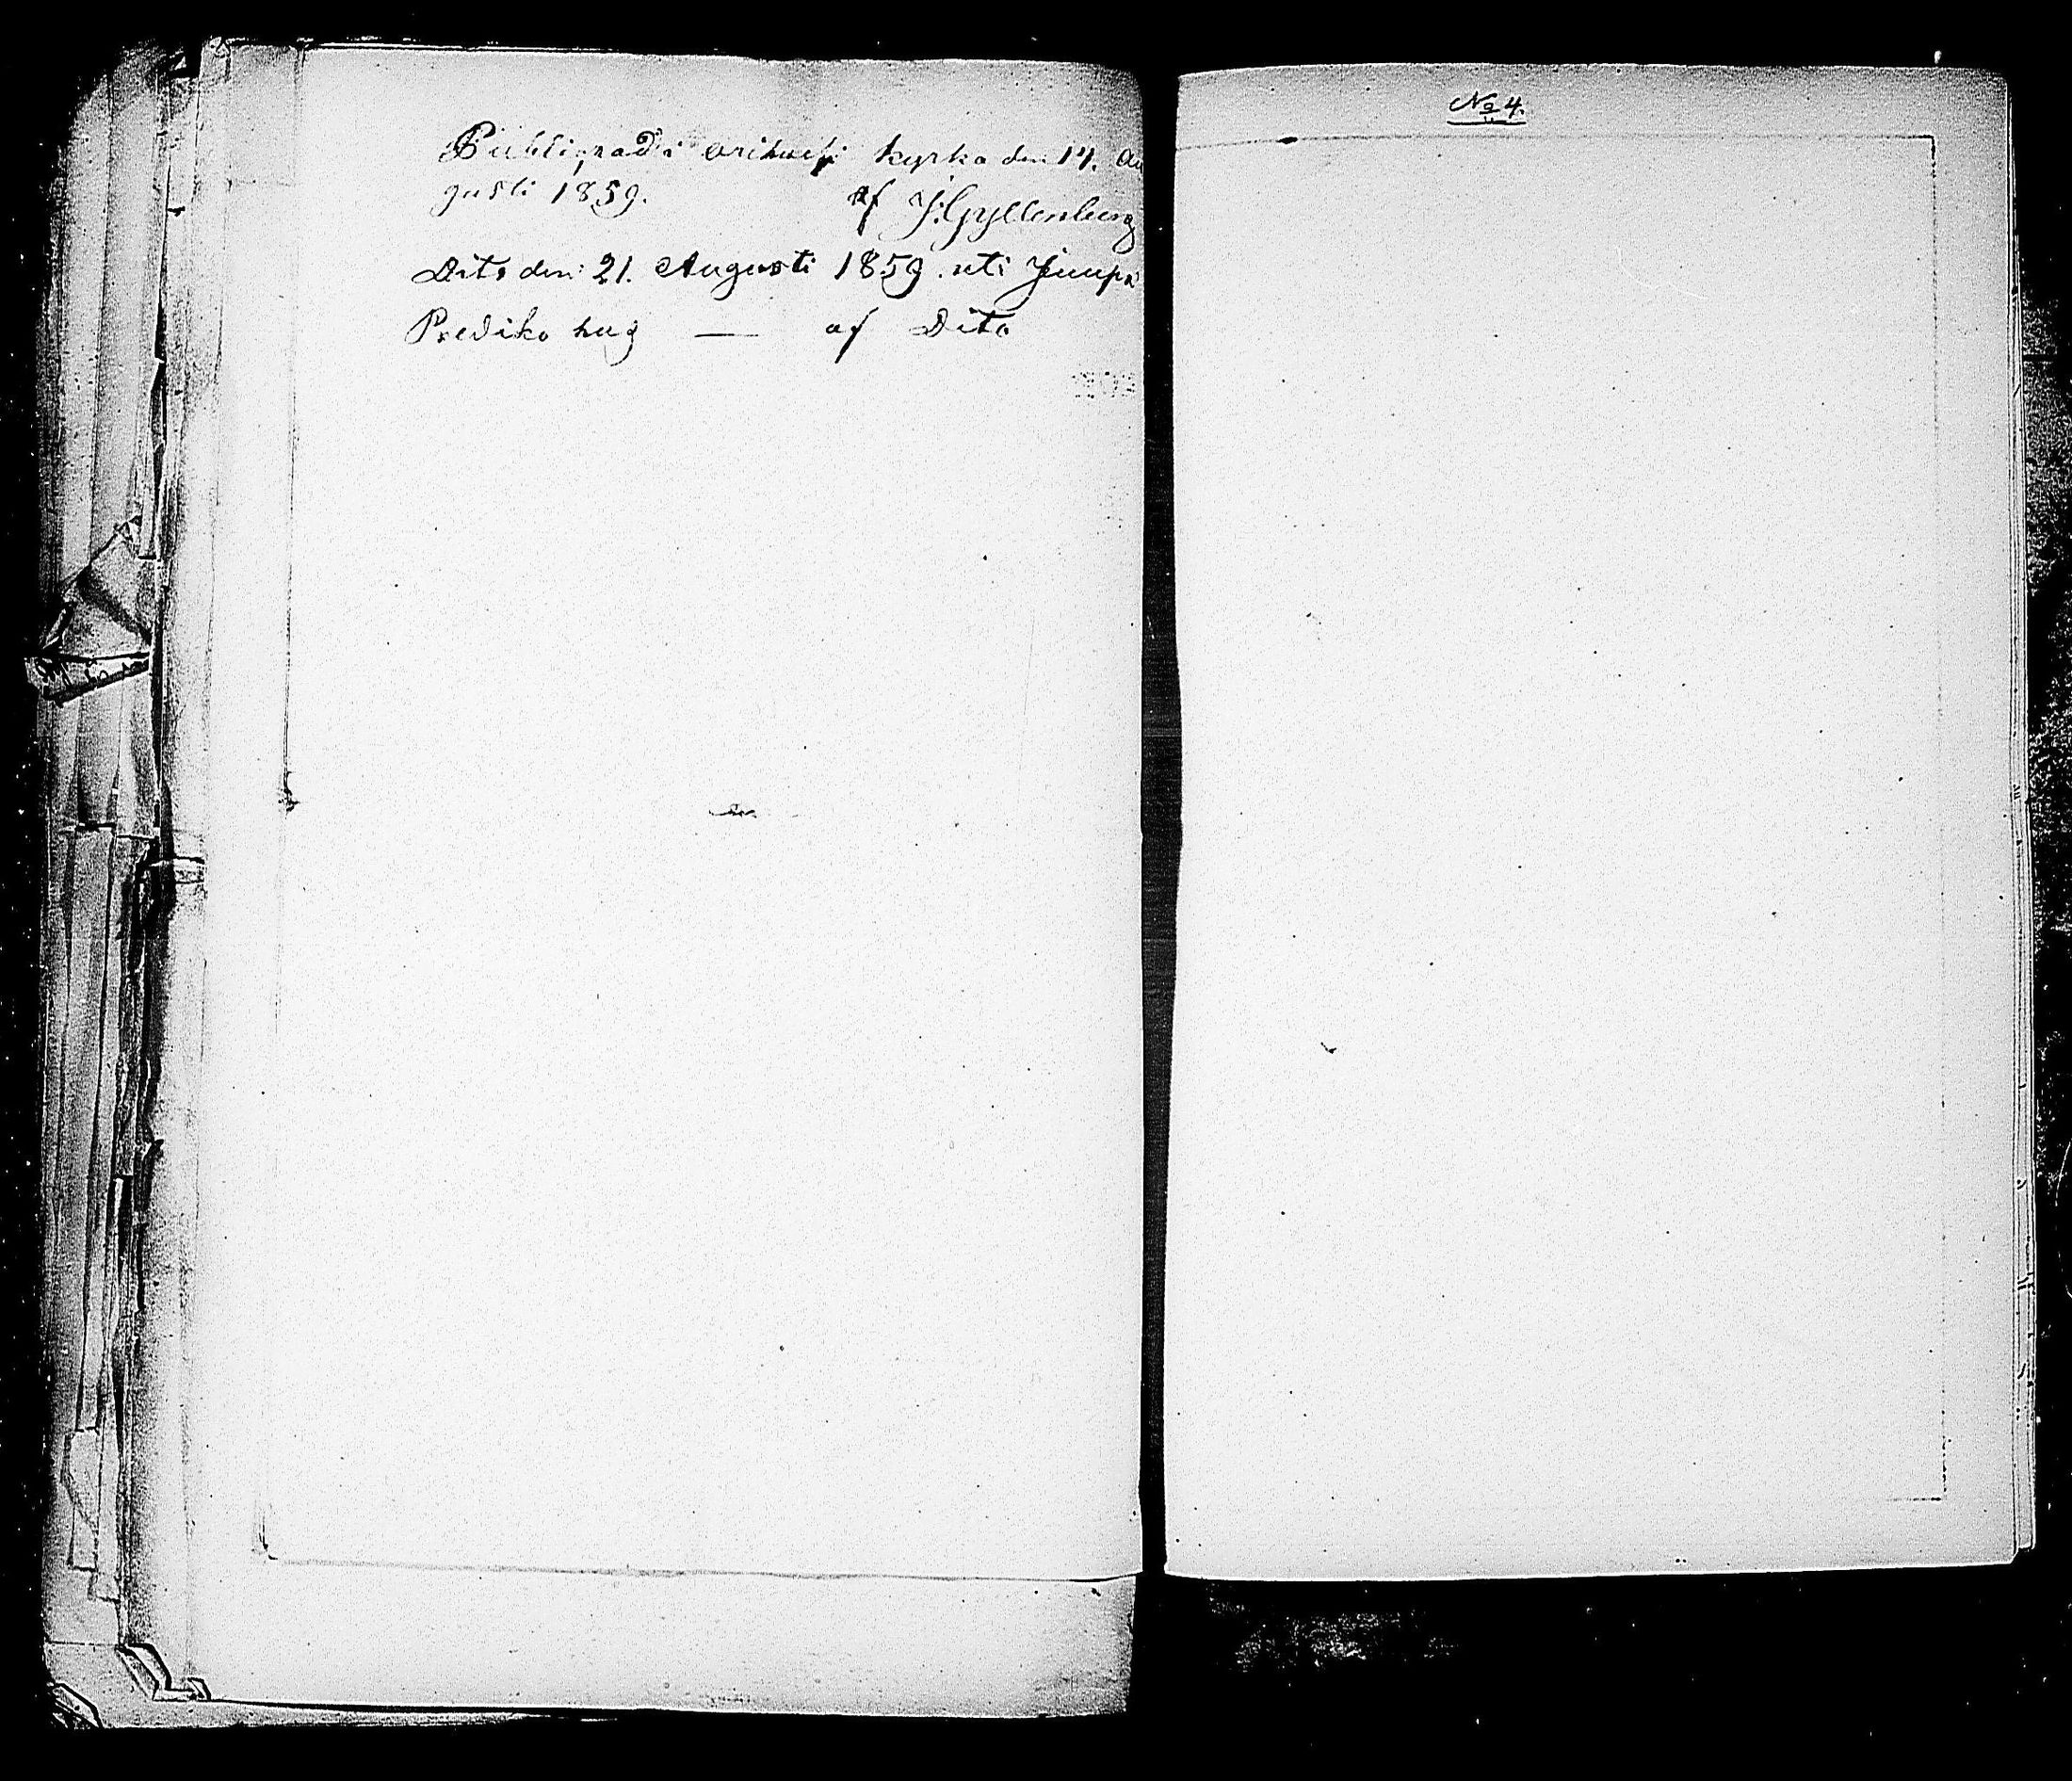 Publicerad i Orihvesi kyrka den 14. Au
gusti 1859. af J: Gyllenberg
Dito den: 21. Augusti 1859. uti Juupa
Prediko hus — af Dito
No 4.